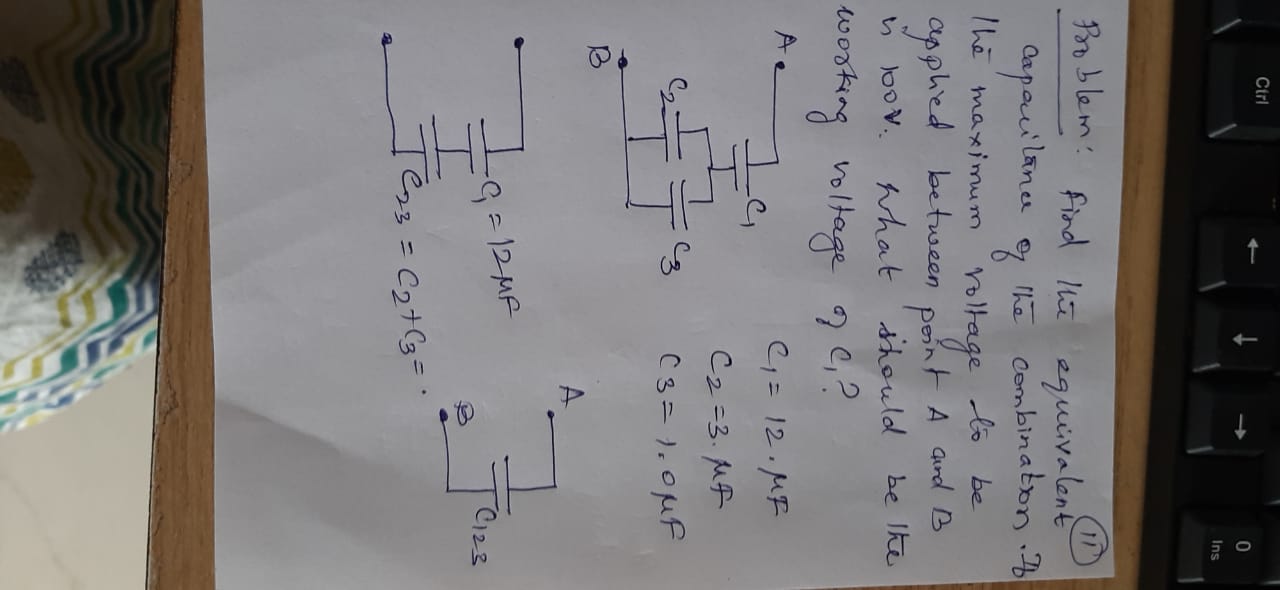 11
Problem: find the equivalent
capacitance of the combination. If
the maximum voltage to be
applied between point A and B
is 100V. what should be the
working voltage of C1?
A
C1
C1 = 12.μF
C2
C2 = 3.μF
C3
C3 = 1.0μF
B
C1 = 12μF
A
C23 = C2+C3 = .
B
C123
Ctrl
←
↓
→
0
Ins